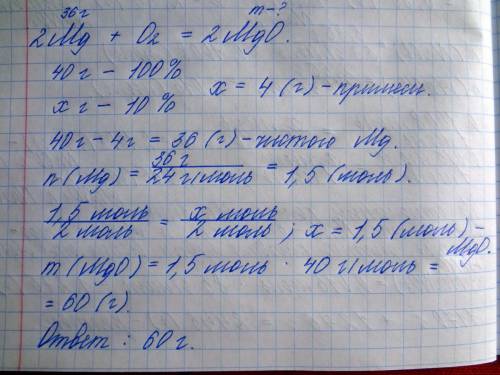 36г m-?
2Mg + O₂ = 2MgO.
40г - 100%
xг - 10% x = 4 (г) - примеси.
40г - 4г = 36 (г) - чистого Mg.
n(Mg) = 36 г / 24 г/моль = 1,5 (моль).
1,5 моль / 2 моль = x моль / 2 моль ; x = 1,5 (моль) - MgO.
m(MgO) = 1,5 моль · 40 г/моль =
= 60 (г).
Ответ: 60 г.